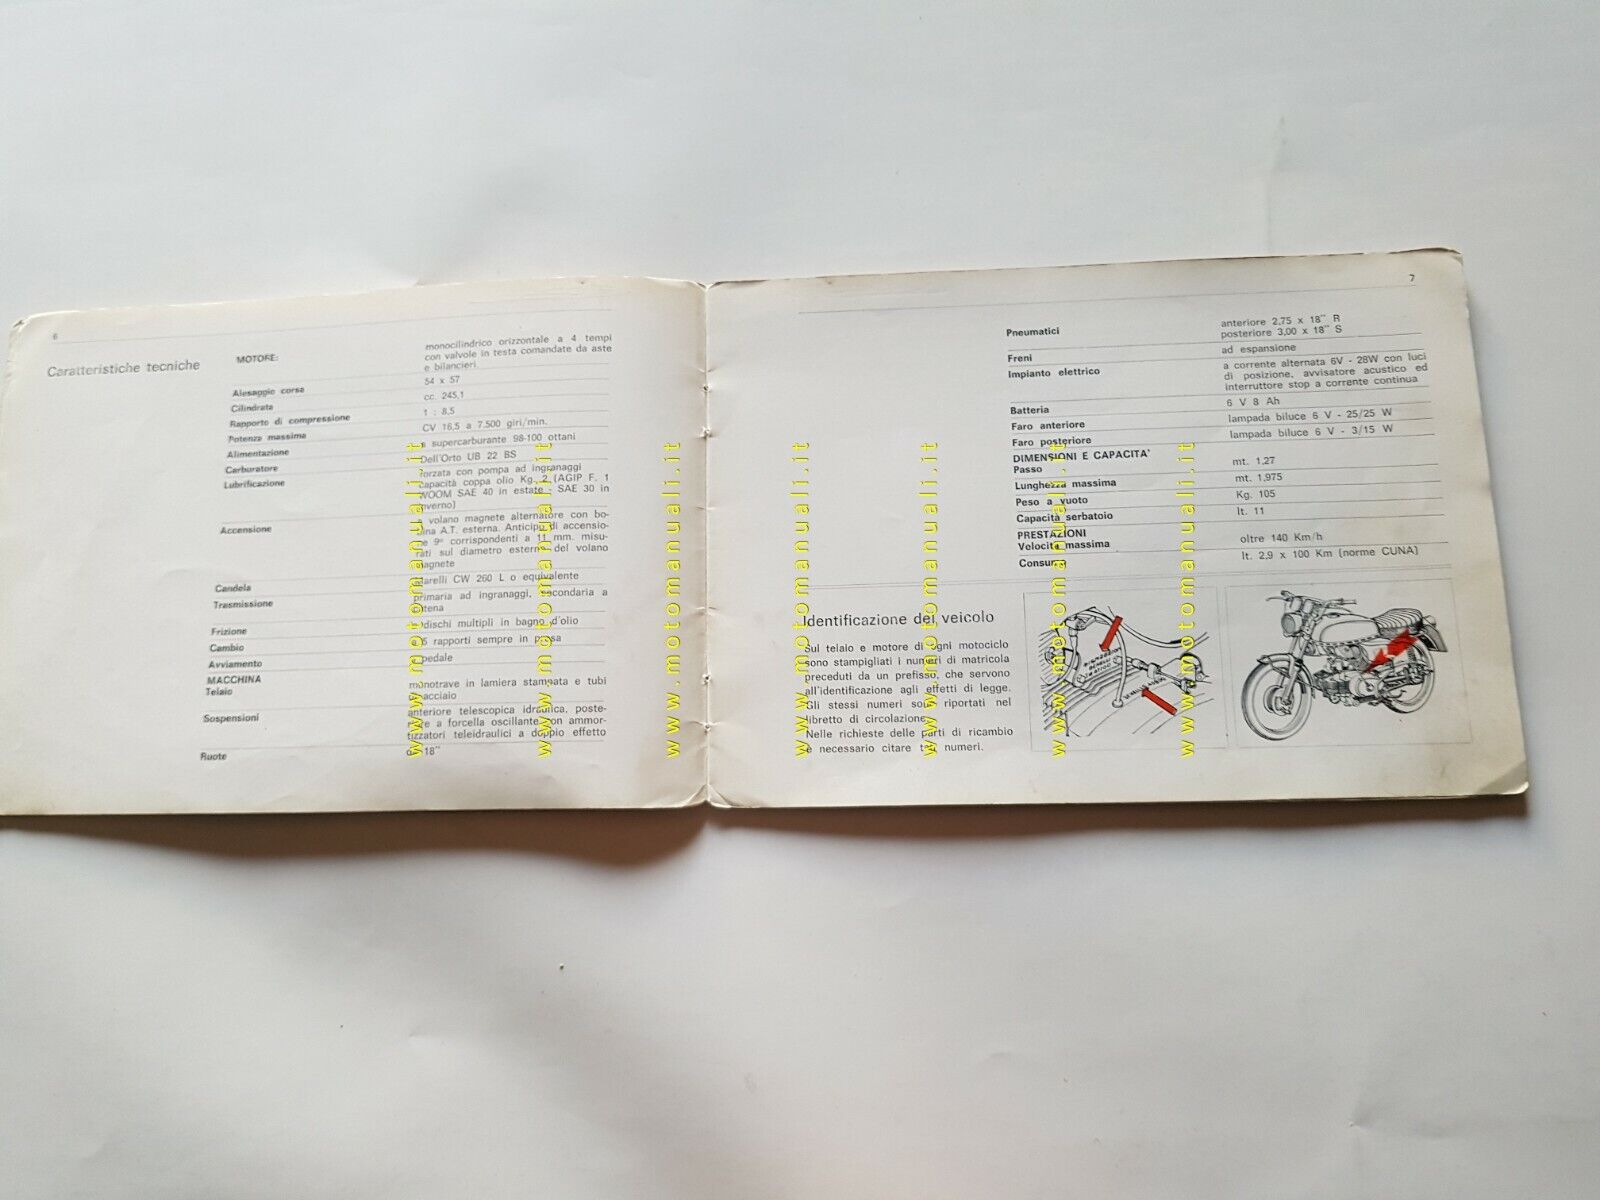 6
Caratteristiche tecniche
MOTORE: monocilindrico orizzontale a 4 tempi
con valvole in testa comandate da aste
e bilancieri.
Alesaggio corsa 54 x 57
Cilindrata cc. 245,1
Rapporto di compressione 1 : 8,5
Potenza massima CV 16,5 a 7.500 giri/min.
Alimentazione a supercarburante 98-100 ottani
Carburatore Dell'Orto UB 22 BS
Lubrificazione forzata con pompa ad ingranaggi
capacità coppa olio Kg. 2 (AGIP F. 1
WOOM SAE 40 in estate - SAE 30 in
inverno)
Accensione a volano magnete alternatore con bo-
bina A.T. esterna. Anticipo di accensio-
ne 9° corrispondenti a 11 mm. misu-
rati sul diametro esterno del volano
magnete
Candela Marelli CW 260 L o equivalente
Trasmissione primaria ad ingranaggi, secondaria a
catena
Frizione a dischi multipli in bagno d'olio
Cambio a 5 rapporti sempre in presa
Avviamento a pedale
MACCHINA
Telaio monotrave in lamiera stampata e tubi
d'acciaio
Sospensioni anteriore telescopica idraulica, poste-
riore a forcella oscillante con ammor-
tizzatori teleidraulici a doppio effetto
Ruote da 18"
7
Pneumatici anteriore 2,75 x 18" R
posteriore 3,00 x 18" S
Freni ad espansione
Impianto elettrico a corrente alternata 6V - 28W con luci
di posizione, avvisatore acustico ed
interruttore stop a corrente continua
Batteria 6 V 8 Ah
Faro anteriore lampada biluce 6 V - 25/25 W
Faro posteriore lampada biluce 6 V - 3/15 W
DIMENSIONI E CAPACITA'
Passo mt. 1,27
Lunghezza massima mt. 1,975
Peso a vuoto Kg. 105
Capacità serbatoio lt. 11
PRESTAZIONI
Velocità massima oltre 140 Km/h
Consumo lt. 2,9 x 100 Km (norme CUNA)
Identificazione del veicolo
Sul telaio e motore di ogni motociclo
sono stampigliati i numeri di matricola
preceduti da un prefisso, che servono
all'identificazione agli effetti di legge.
Gli stessi numeri sono riportati nel
libretto di circolazione.
Nelle richieste delle parti di ricambio
è necessario citare tali numeri.
www.motomanuali.it
www.motomanuali.it
www.motomanuali.it
www.motomanuali.it
www.motomanuali.it
www.motomanuali.it
www.motomanuali.it